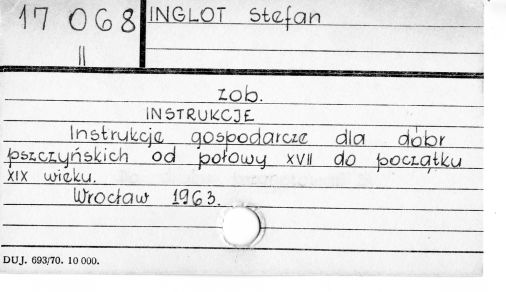 17 068
II
INGLOT Stefan
zob.
INSTRUKCJE
Instrukcje gospodarcze dla dóbr
pszczyńskich od połowy XVII do początku
XIX wieku.
Wrocław 1963.
DUJ. 693/70. 10 000.